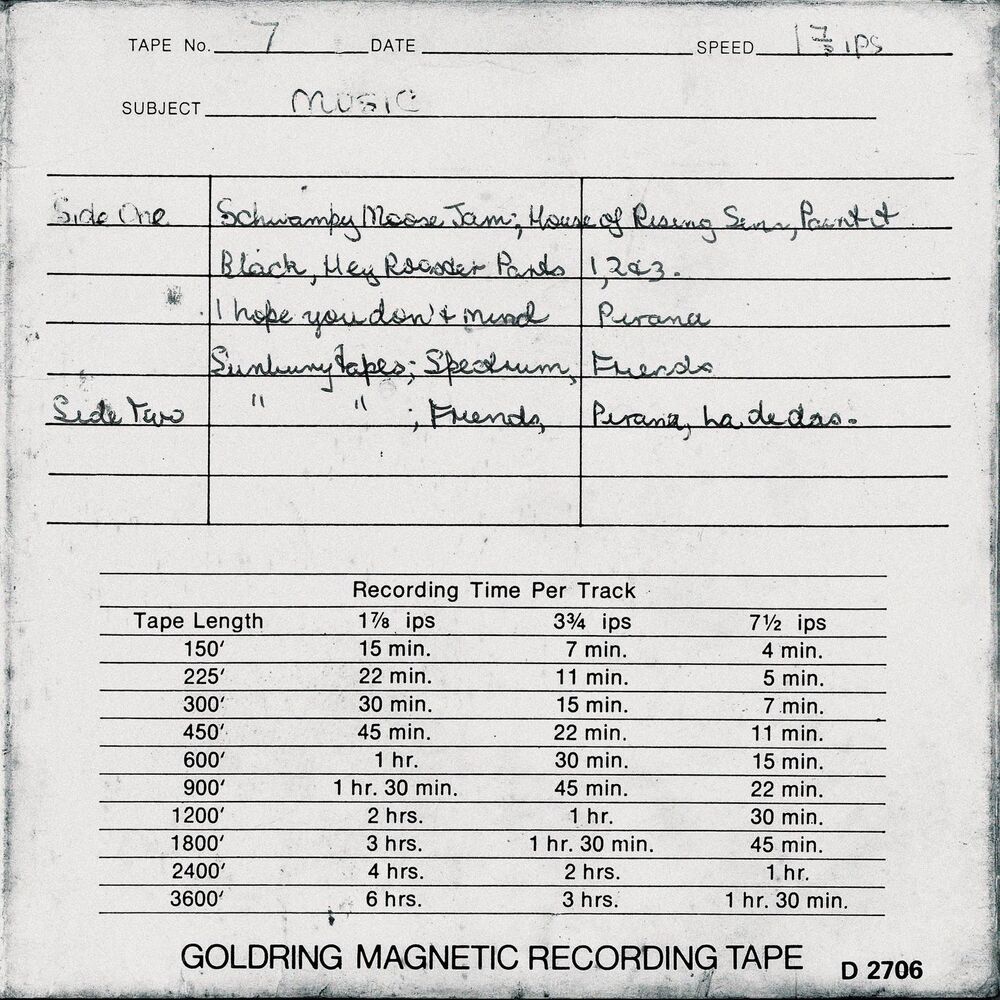 TAPE No. 7 DATE SPEED 1 7/8 ips
SUBJECT MUSIC
Side One Schwampy Moose Jam; House of Rising Sun, Paint it
Black, Hey Rooster Parts 1,2&3.
I hope you don't mind Pirana
Sunbury tapes; Spectrum, Friends
Side Two " " ; Friends, Pirana, La de das.
Recording Time Per Track
Tape Length 1⅞ ips 3¾ ips 7½ ips
150′ 15 min. 7 min. 4 min.
225′ 22 min. 11 min. 5 min.
300′ 30 min. 15 min. 7 min.
450′ 45 min. 22 min. 11 min.
600′ 1 hr. 30 min. 15 min.
900′ 1 hr. 30 min. 45 min. 22 min.
1200′ 2 hrs. 1 hr. 30 min.
1800′ 3 hrs. 1 hr. 30 min. 45 min.
2400′ 4 hrs. 2 hrs. 1 hr.
3600′ 6 hrs. 3 hrs. 1 hr. 30 min.
GOLDRING MAGNETIC RECORDING TAPE D 2706